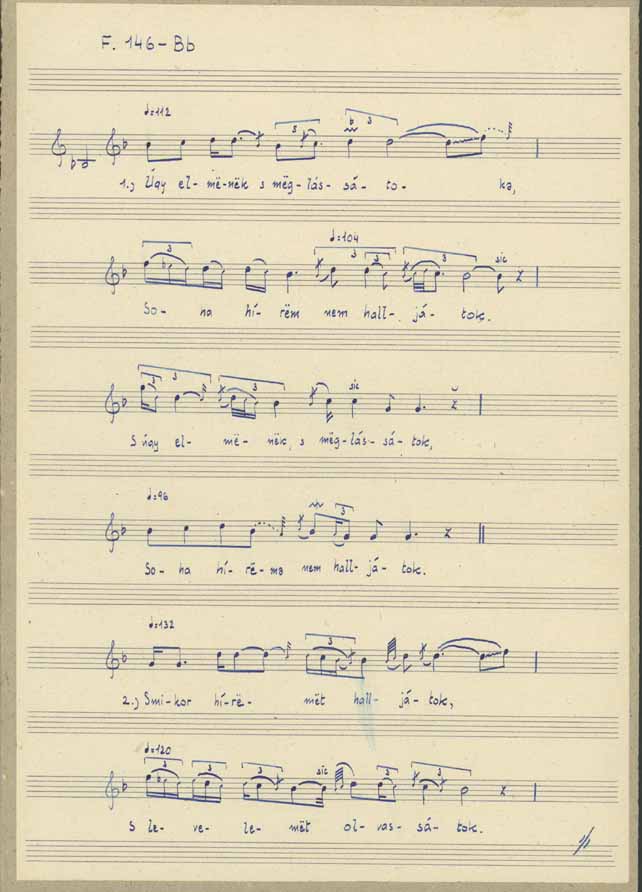 F. 146-Bb
♩=112
3 3
1.) Úgy el- më-nëk s mëg-lás- sá- to- kə,
3 ♩=104 3 3 3 sic
So- na hí- rëm nem hall- já- tok.
3 3 3 sic
S úgy el- më- nëk, s mëg-lás- sá- tok,
♩=96
3
So- ha hí- rë- mə nem hall- já- tok.
♩=132
3
2.) Smi-kor hí-rë- mët hall- já- tok,
♩=120
3 3 3 sic 3 3
S le- ve- le- mët ol- vas- sá- tok.